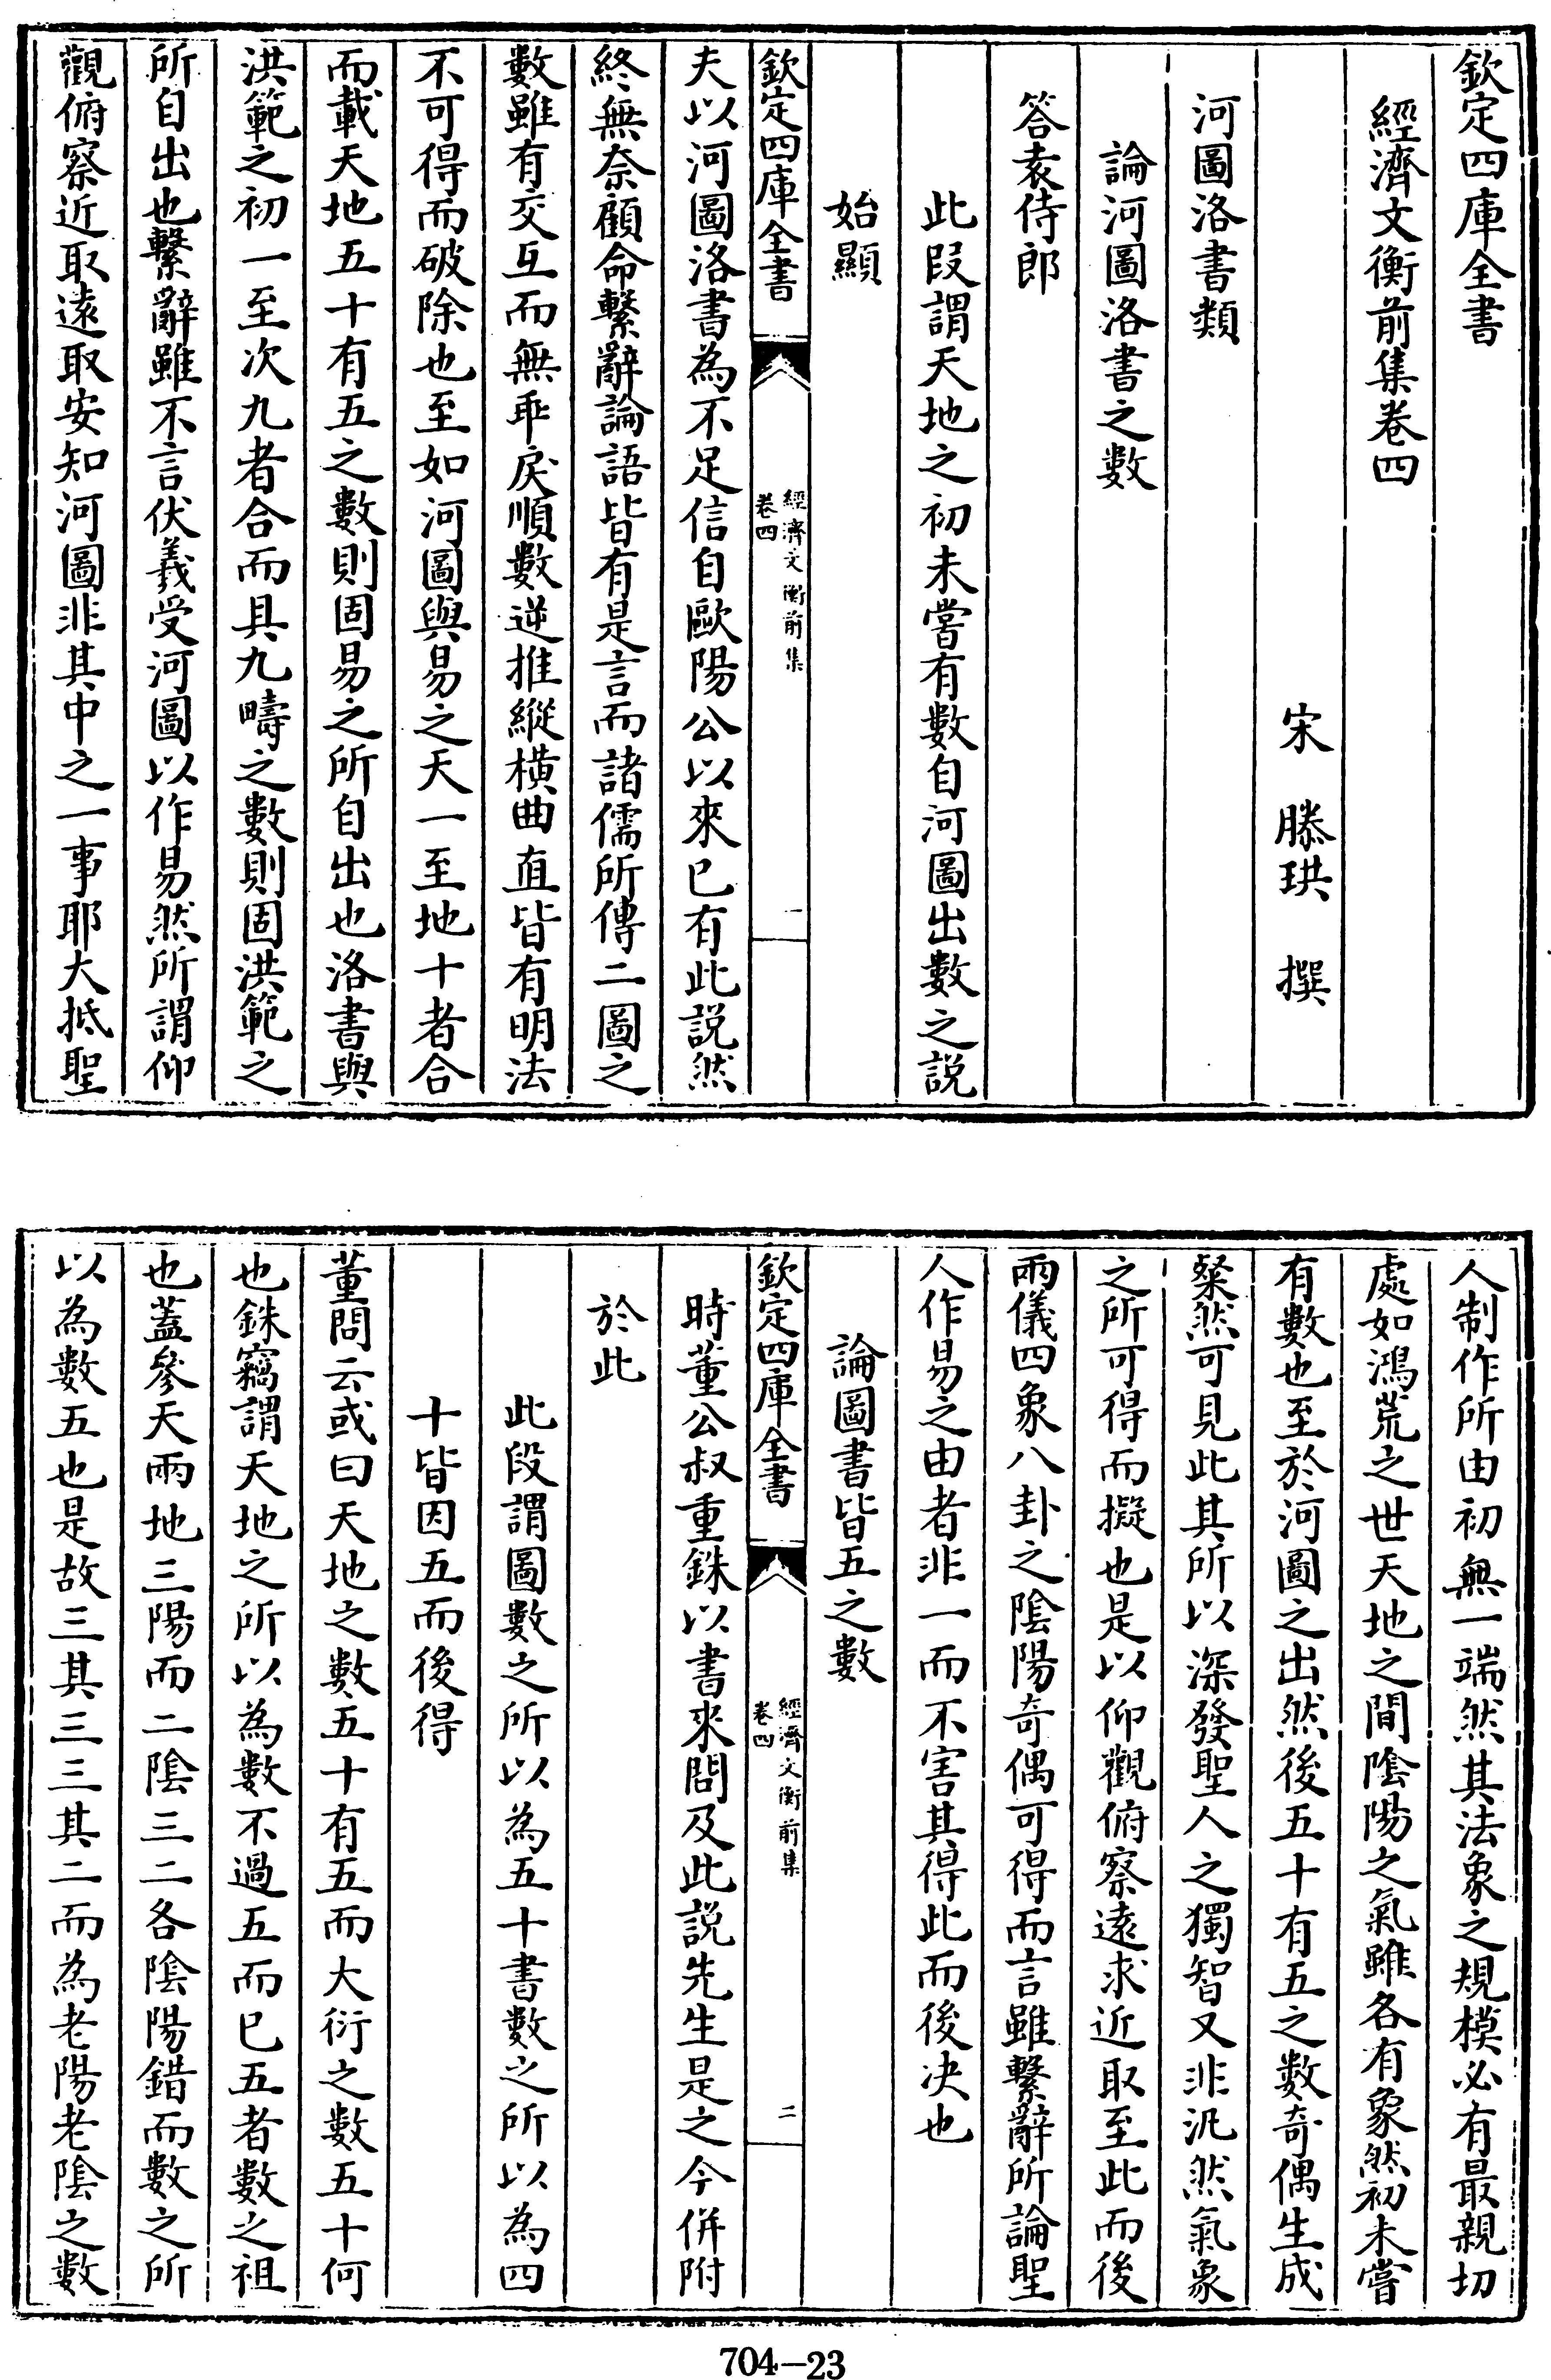 欽定四庫全書
經濟文衡前集卷四
宋 滕珙 撰
河圖洛書類
論河圖洛書之數
答袁侍郎
此段謂天地之初未嘗有數自河圖出數之説
始顯
欽定四庫全書
經濟文衡前集
卷四
一
夫以河圖洛書為不足信自歐陽公以來已有此説然
終無奈顧命繫辭論語皆有是言而諸儒所傳二圖之
數雖有交互而無乖戾順數逆推縱橫曲直皆有明法
不可得而破除也至如河圖與易之天一至地十者合
而載天地五十有五之數則固易之所自出也洛書與
洪範之初一至次九者合而具九疇之數則固洪範之
所自出也繫辭雖不言伏羲受河圖以作易然所謂仰
觀俯察近取遠取安知河圖非其中之一事耶大抵聖
人制作所由初無一端然其法象之規模必有最親切
處如鴻荒之世天地之間陰陽之氣雖各有象然初未嘗
有數也至於河圖之出然後五十有五之數奇偶生成
粲然可見此其所以深發聖人之獨智又非汎然氣象
之所可得而擬也是以仰觀俯察遠求近取至此而後
兩儀四象八卦之陰陽奇偶可得而言雖繫辭所論聖
人作易之由者非一而不害其得此而後决也
論圖書皆五之數
欽定四庫全書
經濟文衡前集
卷四
二
時董公叔重銖以書來問及此説先生是之今併附
於此
此段謂圖數之所以為五十書數之所以為四
十皆因五而後得
董問云或曰天地之數五十有五而大衍之數五十何
也銖竊謂天地之所以為數不過五而已五者數之祖
也蓋參天兩地三陽而二陰三二各陰陽錯而數之所
以為數五也是故三其三三其二而為老陽老陰之數
704-23